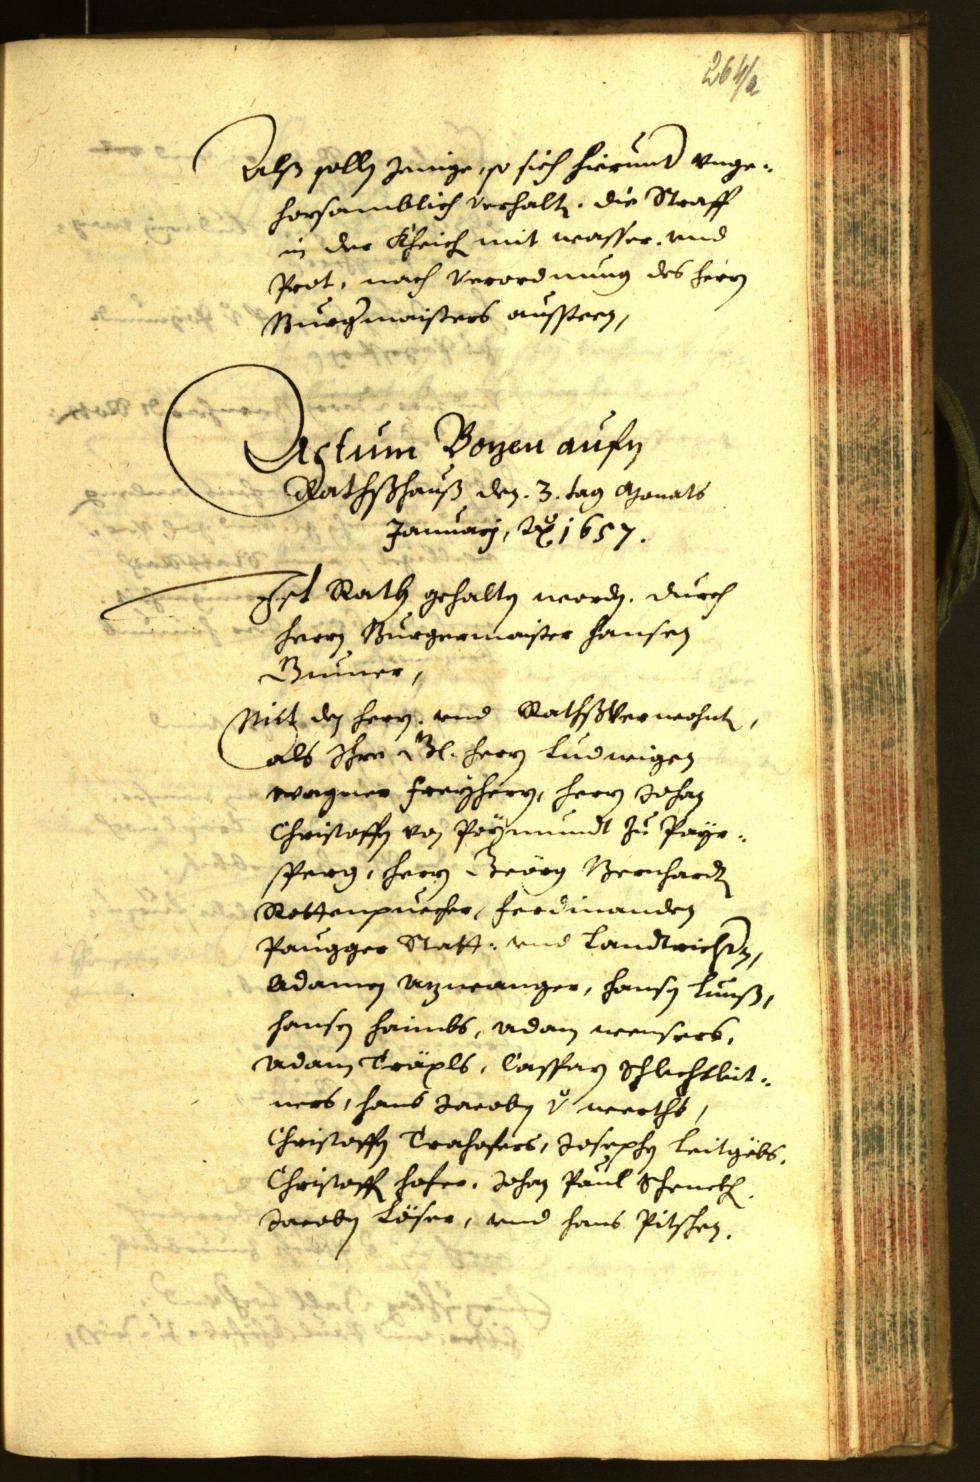 264/a
Alß solln Jenige, so sich hierund unge-
horsamblich verhaltn. die Straff
in der Kheich mit wasser. und
Prot, nach Verordnung des herrn
Burgmaisters aussteen,
Actum Bozen aufm
Rathßhauß den. 3. tag Monats
Januarij, 1657.
Ist Rath gehaltn wordn. durch
herrn Burgermaister hansen
Mit den herrn. und Rathßverwohntn,
als Ihro herrn Ludwigen
wagner freyherrn, herrn Johan
Christoffn von Paÿrmundt zu Payr-
sperg, herrn Geörg Bernhardt
Rottenpuecher, ferdinanden
Paugger Statt- und Landtrichter,
Adamen Azwanger, hansn Lunß,
hansn haimbs, Adam wensers,
Adam Träxls, Casspar Schlechtleit-
ners, hans Jacobn v werths,
Christoffn Trahofers, Josephn Leitgebs,
Christoff hofer, Johan Paul Schenckh.
Jacobn Löser, und hans Pitschen.